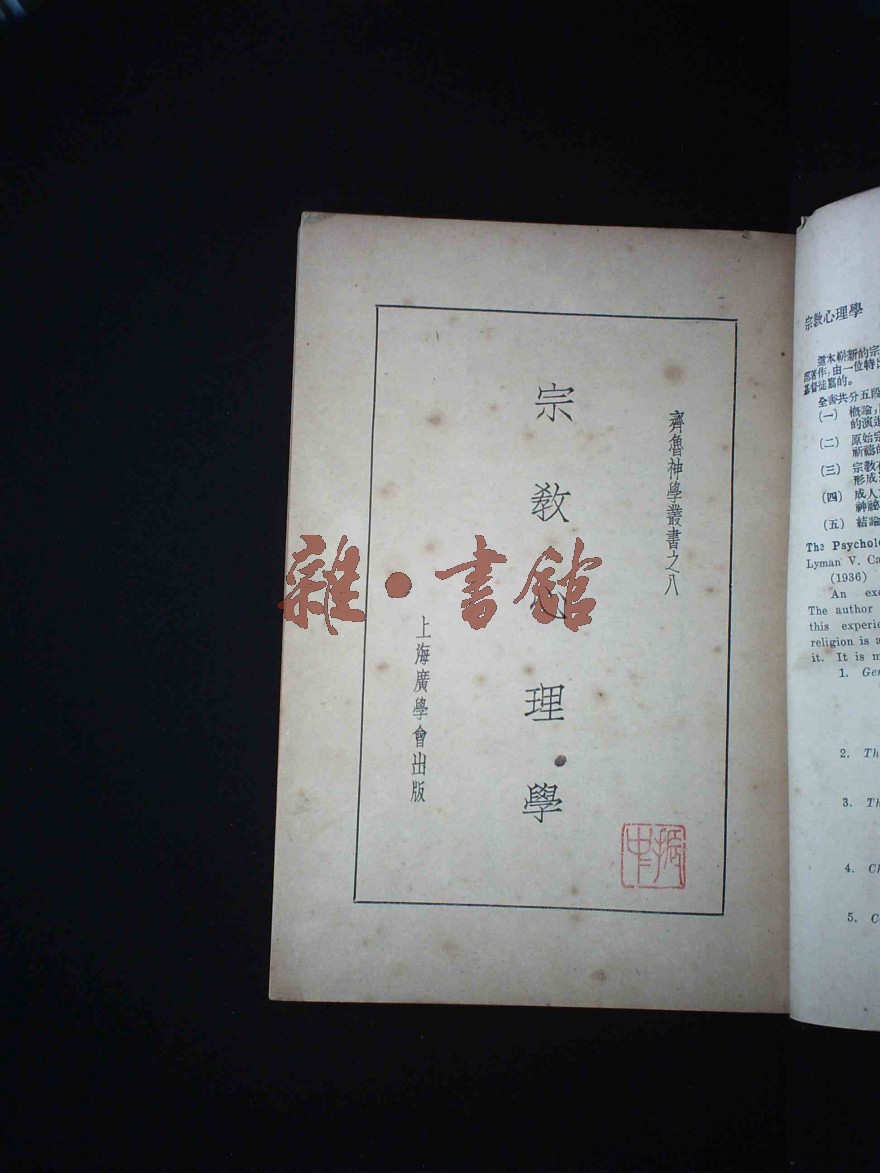 齊魯神學叢書之八
宗教心理學
上海廣學會出版
雜·書館
振中
宗教心理學
這本嶄新的宗
部著作,由一位特
基督徒寫的。
全書共分五段
(一) 概論,
的演進
(二) 原始宗
祈禱的
(三) 宗教
形成
(四) 成人
神祕
(五) 結論
The Psychol
Lyman V. Ca
(1936)
An exc
The author
this experie
religion is a
it. It is m
1. Gen
2. Th
3. Th
4. Ch
5. C